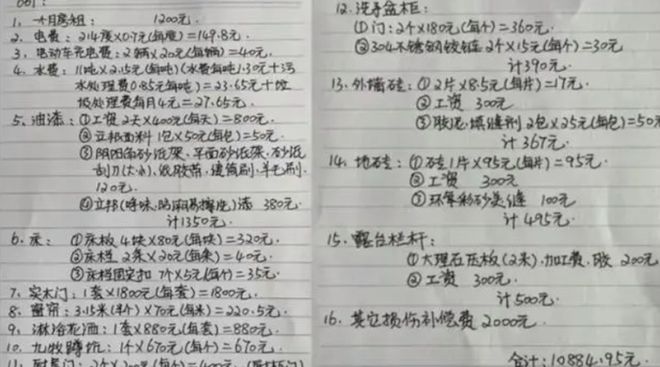 1、一个月房租: 1200元.
2、电费: 214度×0.7元(每度)=149.8元.
3、电动车充电费: 2辆×20元(每辆)=40元.
4、水费: 11吨×2.15元(每吨)(水费每吨1.30元+污
水处理费0.85元每吨)=23.65元+垃
圾处理费每月4元=27.65元.
5、油漆: ①工资 2天×400元(每天)=800元.
②立邦面料 1包×50元(每包)=50元.
③阴阳角砂纸架、平面砂纸架、砂纸
刮刀(大小)、纸胶带、滚筒刷、羊毛刷.
120元.
④立邦(呼味、)漆 380元.
计1350元.
6、床: ①床板 4块×80元(每块)=320元.
②床档 2条×20元(每条)=40元.
③床档固定扣 7个×5元(每个)=35元.
7、实木门: 1套×1800元(每套)=1800元.
8、窗帘: 3.15米(半个)×70元(每米)=220.5元.
9、淋浴花洒: 1套×880元(每套)=880元.
10、九牧蹲坑: 1个×670元(每个)=670元.
12、洗手盆柜:
①门: 2个×180元(每个)=360元.
②304不锈钢铰链 2个×15元(每个)=30元
计390元.
13、外墙砖: ①2片×8.5元(每片)=17元.
②工资 300元.
③胶泥、填缝剂 2包×25元(每包)=50元
计367元.
14、地砖: ①砖1片×95元(每片)=95元.
②工资 300元
③环氧彩砂美缝 100元
计495元.
15、露台栏杆:
①大理石压板(2米)、加工费、胶 200元
②工资 300元.
计500元.
16、其它损伤补偿费 2000元.
合计: 10884.95元.